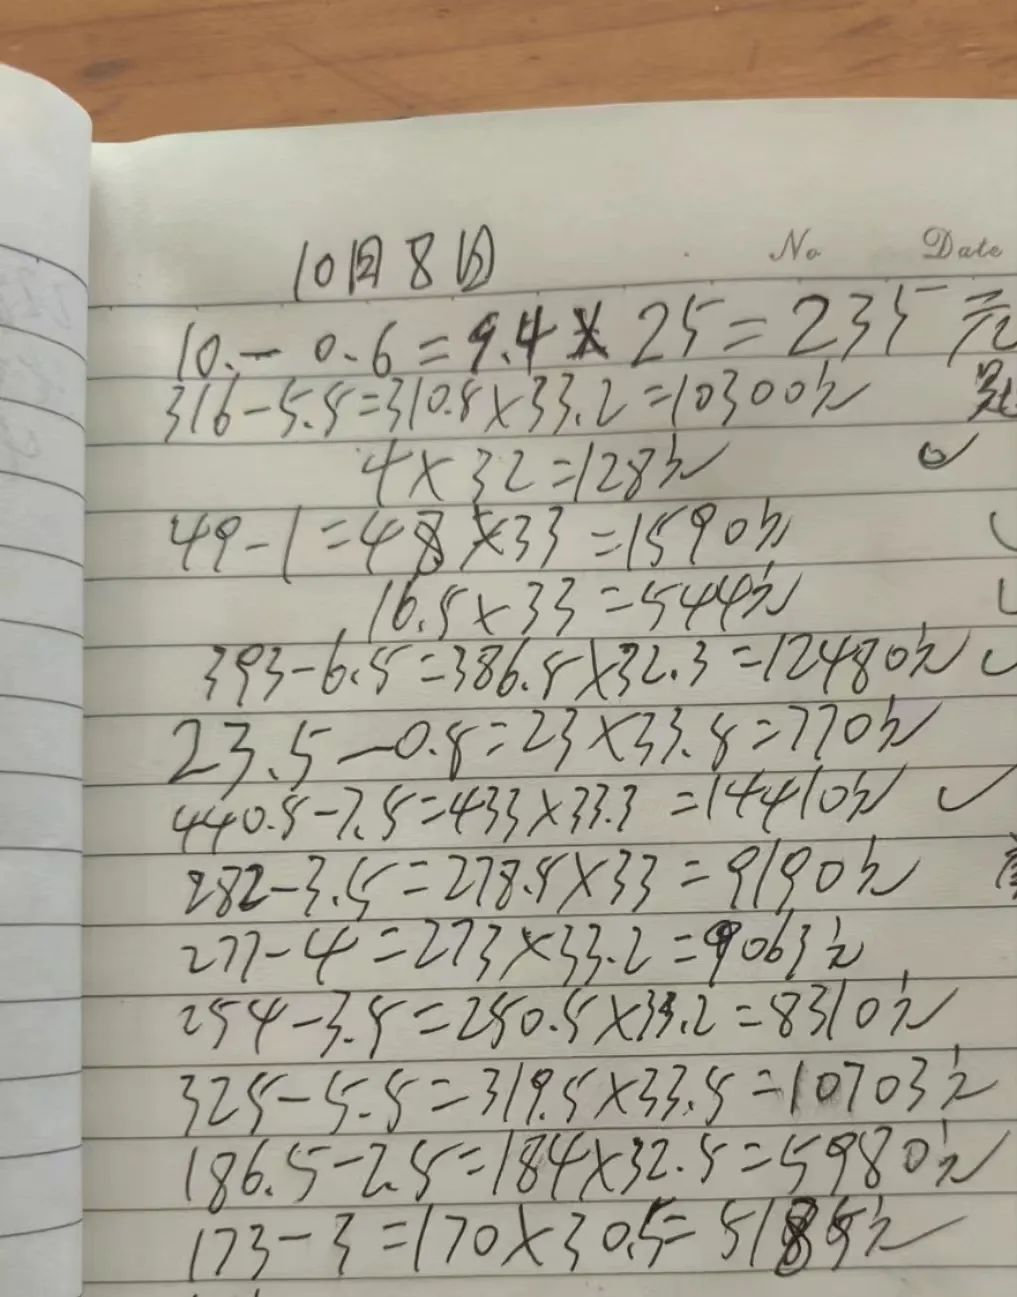 No Date
10月8日
10.-0.6=9.4×25=235元
316-5.5=310.5×33.2=10300元
4×32=128元
49-1=48×33=1590元
16.5×33=544元
393-6.5=386.5×32.3=12480元
23.5-0.5=23×33.5=770元
440.5-7.5=433×33.3=14410元
282-3.5=278.5×33=9190元
277-4=273×33.2=9063元
254-3.5=250.5×33.2=8310元
325-5.5=319.5×33.5=10703元
186.5-2.5=184×32.5=5980元
173-3=170×30.5=5185元